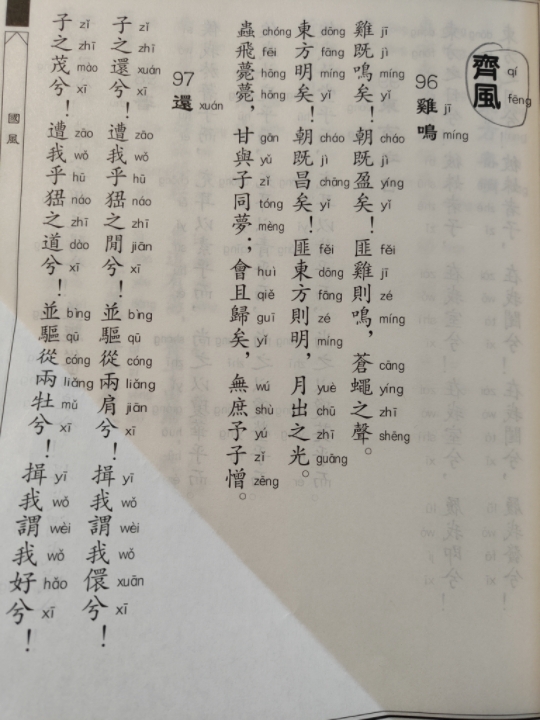 齊qí風fēng
96 雞jī鳴míng
雞jī既jì鳴míng矣yǐ！朝cháo既jì盈yíng矣yǐ！匪fěi雞jī則zé鳴míng，蒼cāng蠅yíng之zhī聲shēng。
東dōng方fāng明míng矣yǐ！朝cháo既jì昌chāng矣yǐ！匪fěi東dōng方fāng則zé明míng，月yuè出chū之zhī光guāng。
蟲chóng飛fēi薨hōng薨hōng，甘gān與yǔ子zǐ同tóng夢mèng；會huì且qiě歸guī矣yǐ，無wú庶shù予yú子zǐ憎zēng。
97 還xuán
子zǐ之zhī還xuán兮xī！遭zāo我wǒ乎hū猺náo之zhī閒jiān兮xī！並bìng驅qū從cóng兩liǎng肩jiān兮xī！揖yī我wǒ謂wèi我wǒ儇xuān兮xī！
子zǐ之zhī茂mào兮xī！遭zāo我wǒ乎hū猺náo之zhī道dào兮xī！並bìng驅qū從cóng兩liǎng牡mǔ兮xī！揖yī我wǒ謂wèi我wǒ好hǎo兮xī！
國風